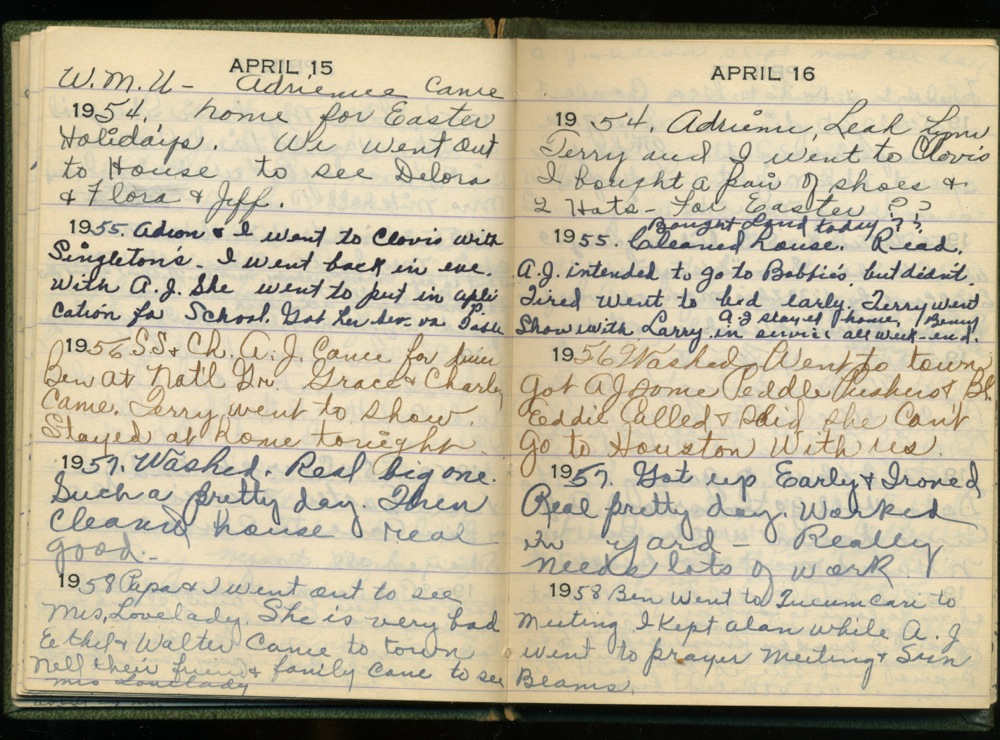 APRIL 15
W.M.U - Adrienne Came
1954. home for Easter
Holidays. We went out
to House to see Delora
& Flora & Jeff.
1955. Adron & I went to Clovis with
Singleton's. I went back in eve.
with A.J. She went to put in apli
cation for School. Got her
1956 SS & Ch. A.J. Came for
Ben at Nat'l Gr. Grace & Charley
Came. Terry went to show.
Stayed at home tonight
1957. Washed. Real big one.
Such a pretty day. Then
cleaned house real
good.-
1958 Papa & I went out to see
Mrs. Lovelady. She is very bad
Ethel & Walter Came to town
Nell their friend & family came to see
Mrs Lovelady
APRIL 16
1954. Adrienne, Leah Lynn
Terry and I went to Clovis
I bought a pair of shoes &
2 Hats - For Easter ??
Bought Land today ??
1955. Cleaned house. Read.
A.J. intended to go to Bobbie's, but didn't.
Tired went to bed early. Terry went
A.J stayed home, Benny
Show with Larry. in service all week-end.
1956 Washed. Went to town
got AJ some Peddle Pushers & Bl.
Eddie Called & said she Can't
go to Houston With us.
1957. Got up Early & Ironed
Real pretty day. Worked
in yard - Really
needs lots of work.
1958 Ben Went to Tucumcari to
Meeting I kept alan while A.J
went to prayer Meeting & Sun
Beams.